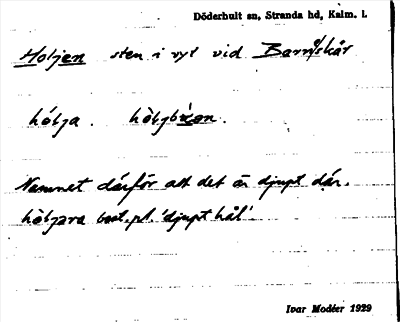 Döderhult sn, Stranda hd, Kalm. l.
Holjen sten i vyt vid Barnskär
hólja. 
Namnet därför att det är djupt där.
hòljara best. pl. 'djupt hål'.
Ivar Modéer 1929